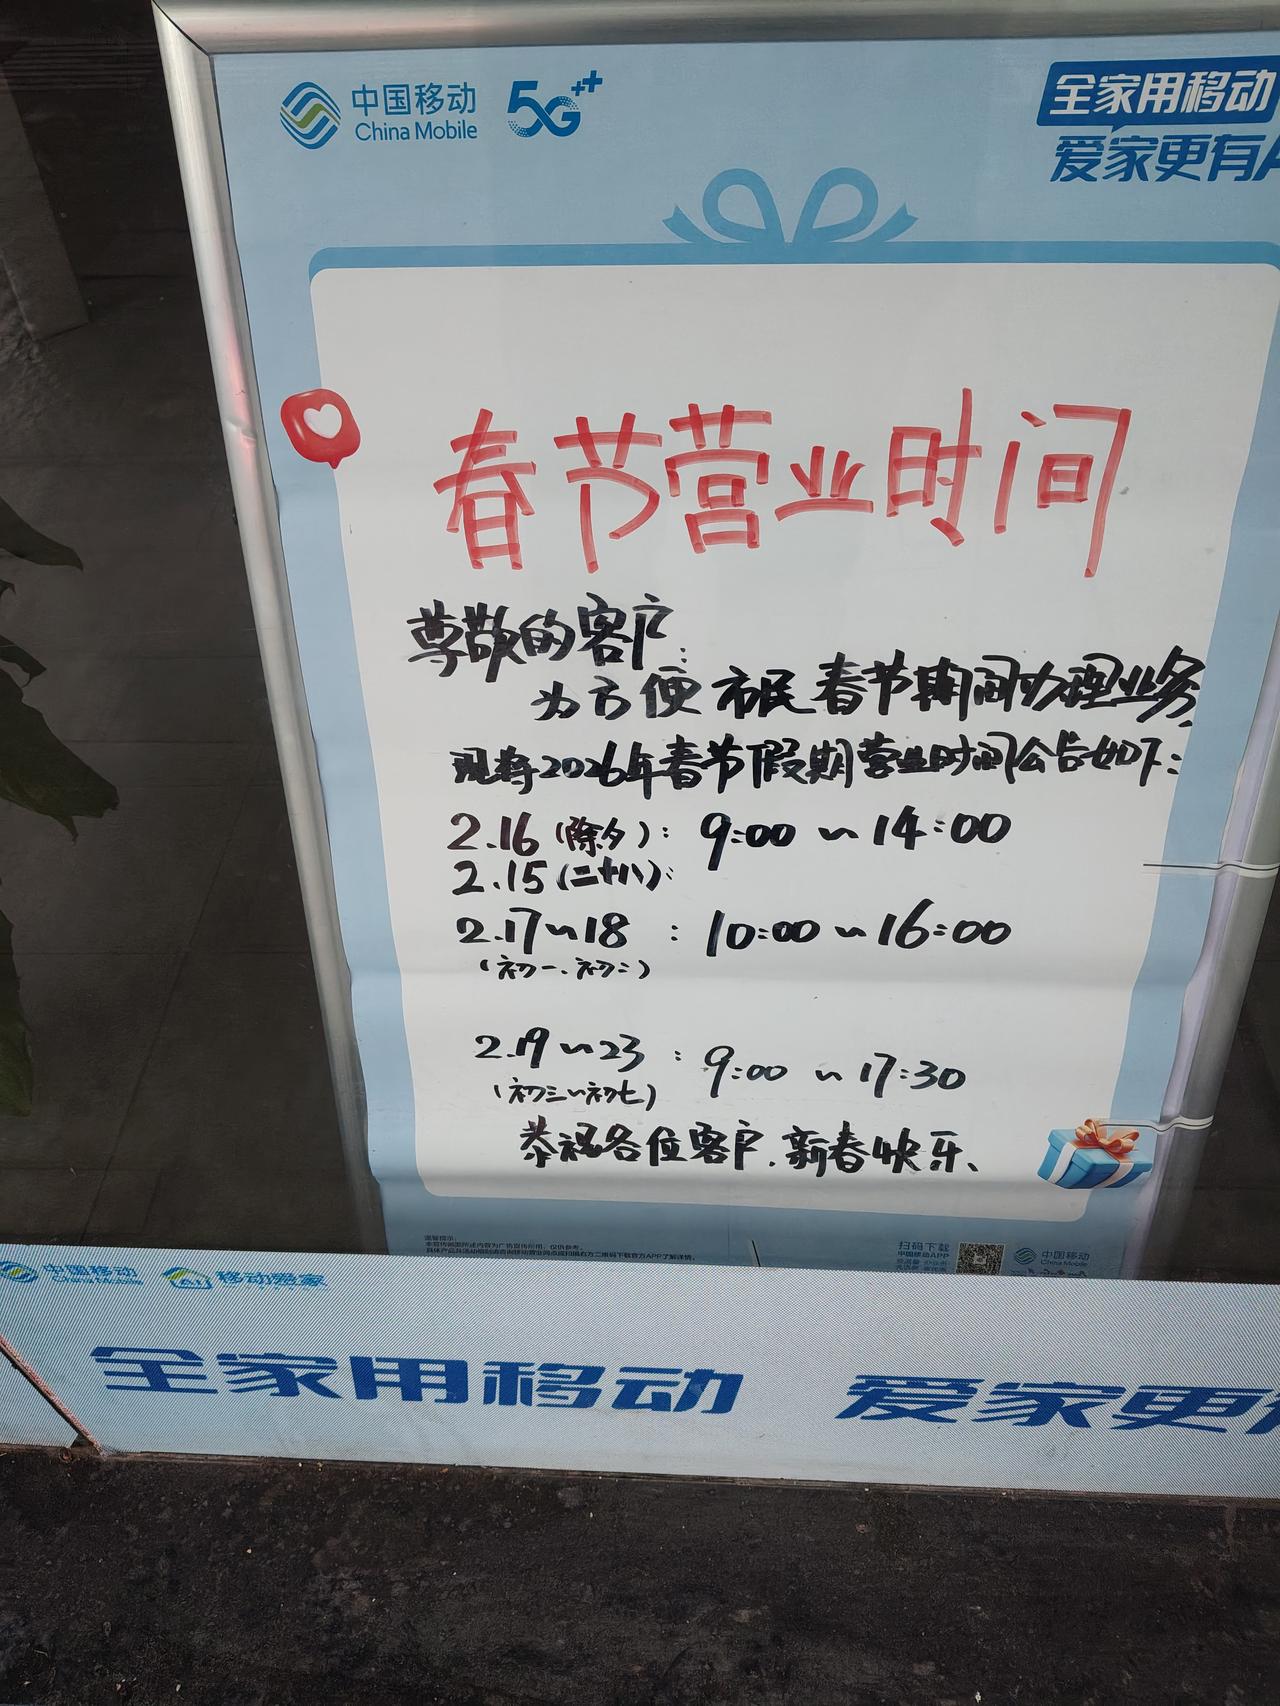 中国移动
China Mobile
5G++
全家用移动
爱家更有A
春节营业时间
尊敬的客户:
为方便市民春节期间办理业务,
现将2026年春节假期营业时间公告如下:
2.16(除夕): 9:00~14:00
2.15(二十八):
2.17~18 : 10:00~16:00
(初一、初二)
2.19~23 : 9:00~17:30
(初三~初七)
恭祝各位客户、新春快乐、
温馨提示:
本宣传画面所述内容为广告宣传所用,仅供参考。
扫码下载
中国移动APP
中国移动
China Mobile
中国移动
China Mobile
移动爱家
全家用移动 爱家更有